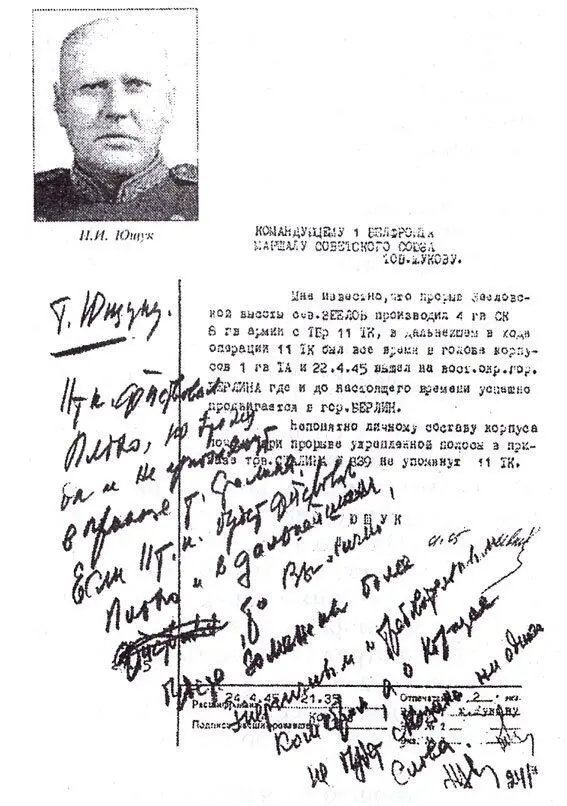 Н.И. Ющук
КОМАНДУЮЩЕМУ 1 БЕЛФРОНТА
МАРШАЛУ СОВЕТСКОГО СОЮЗА
ТОВ.ЖУКОВУ.
Мне известно,что прорыв Зееловс-
кой высоты сев.ЗЕЕЛОВ производил 4 гв СК
8 гв армии с ТБр 11 ТК, в дальнейшем в ходе
операции 11 ТК был все время в голове корпу-
сов 1 гв ТА и 22.4.45 вышел на вост.окр.гор.
БЕРЛИНА где и до настоящего времени успешно
продвигается в гор.БЕРЛИН.
Непонятно личному составу корпуса
почему при прорыве укрепленной полосы в при-
казе тов.СТАЛИНА № 339 не упомянут 11 ТК.
ЮЩУК
т. Ющуку.
11 т.к. действовал
плохо,
и не
в приказе т. Сталина.
Если 11 т.к. будет действовать
плохо и в дальнейшем,
то Вы лично
будете заменены более
решительным и
командиром, а о корпусе
не будет сказано ни одного
слова.
24.4.45 21.35
Отпечатано 2 экз.
Жукову
№ 2
24/4